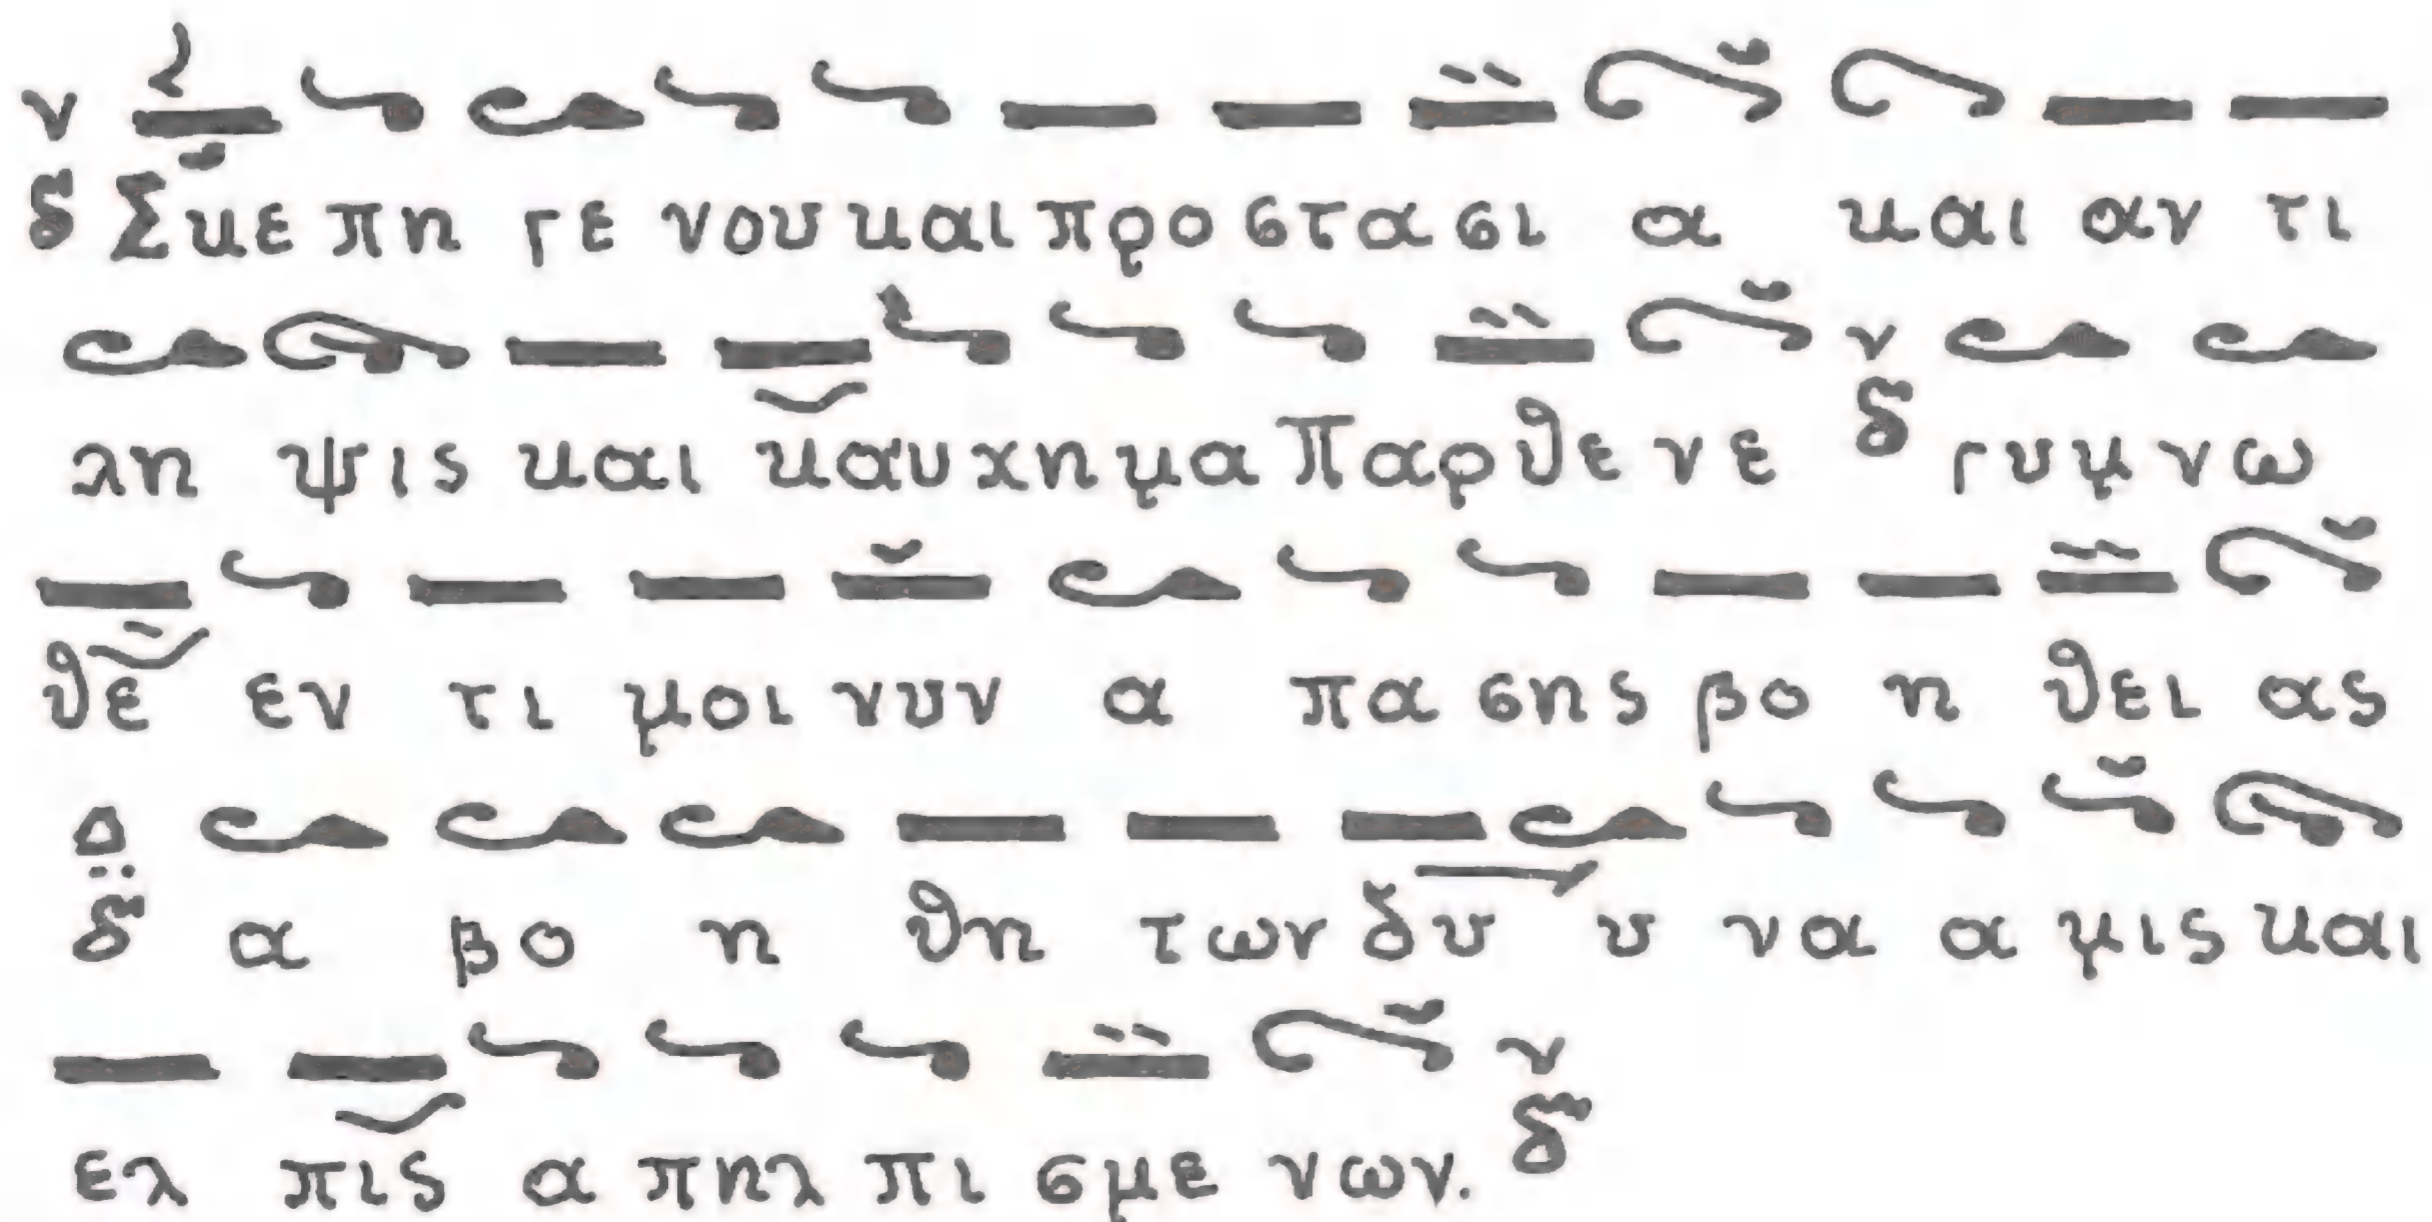 ν δ Σκε πη γε νου και προ στα σι α και αν τι
λη ψις και καυ χη μα Παρ θε νε ν δ γυ μνω
θε εν τι μοι νυν α πα σης βο η θει ας
Δ δ α βο η θη των δυ υ να α μις και
ελ πις α πηλ πι σμε νων. ν δ